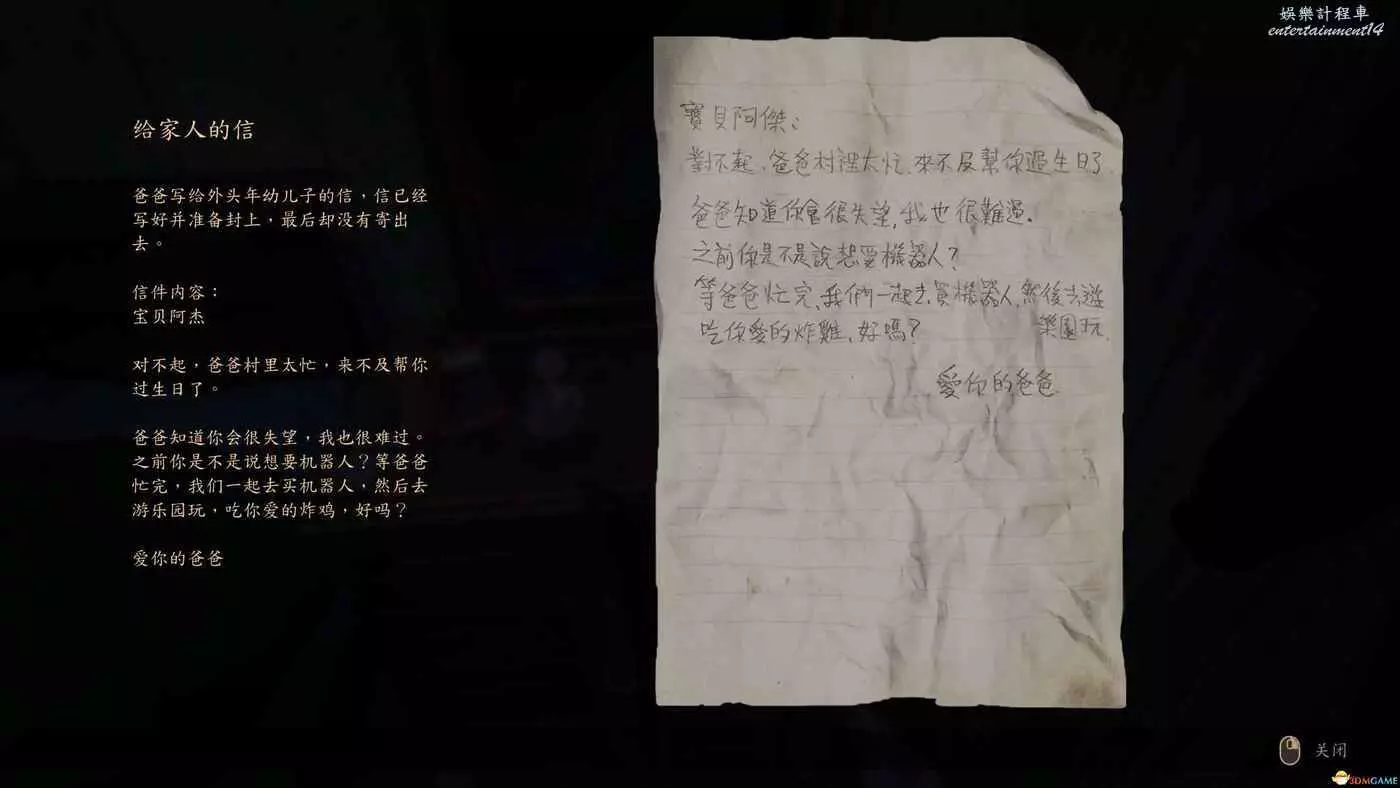 娛樂計程車
entertainment14
给家人的信
爸爸写给外头年幼儿子的信，信已经
写好并准备封上，最后却没有寄出
去。
信件内容：
宝贝阿杰
对不起，爸爸村里太忙，来不及帮你
过生日了。
爸爸知道你会很失望，我也很难过。
之前你是不是说想要机器人？等爸爸
忙完，我们一起去买机器人，然后去
游乐园玩，吃你爱的炸鸡，好吗？
爱你的爸爸
寶貝阿傑：
對不起，爸爸村裡太忙，來不及幫你過生日了。
爸爸知道你會很失望，我也很難過。
之前你是不是說想要機器人？
等爸爸忙完，我們一起去買機器人，然後去遊
樂園玩，
吃你愛的炸雞，好嗎？
愛你的爸爸
关闭
3DMGAME